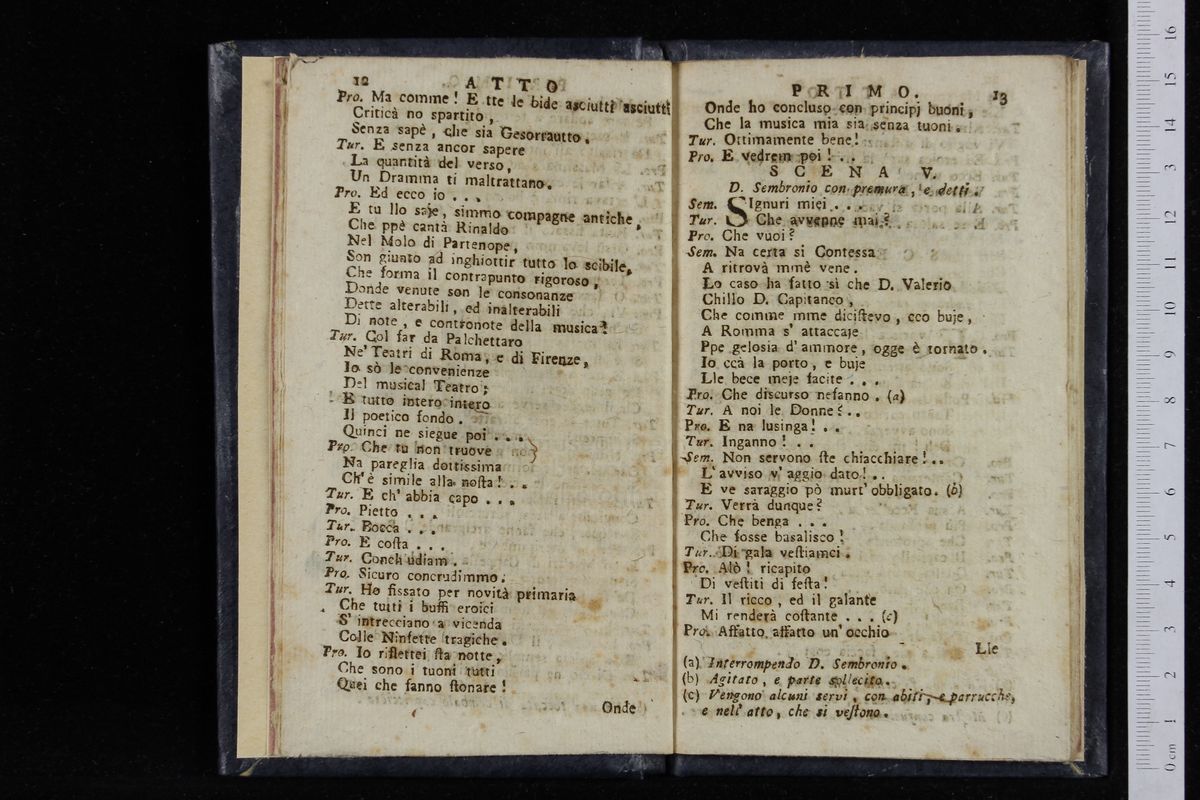 12 ATTO
Pro. Ma comme! E tte le bide asciutti asciutti
Criticà no spartito,
Senza sapè, che sia Gesorrautto.
Tur. E senza ancor sapere
La quantità del verso,
Un Dramma ti maltrattano.
Pro. Ed ecco io ...
E tu llo saje, simmo compagne antiche,
Che ppè cantà Rinaldo
Nel Molo di Partenope,
Son giunto ad inghiottir tutto lo scibile,
Che forma il contrapunto rigoroso,
Donde venute son le consonanze
Dette alterabili, ed inalterabili
Di note, e contronote della musica!
Tur. Col far da Palchettaro
Ne' Teatri di Roma, e di Firenze,
Io sò le convenienze
Del musical Teatro;
E tutto intero intero
Il poetico fondo.
Quinci ne siegue poi ....
Pro. Che tu non truove
Na pareglia dottissima
Ch'è simile alla nosta! ..
Tur. E ch' abbia capo ...
Pro. Pietto ...
Tur. Bocca ...
Pro. E costa ...
Tur. Conchiudiam.
Pro. Sicuro concrudimmo.
Tur. Ho fissato per novità primaria
Che tutti i buffi eroici
S' intrecciano a vicenda
Colle Ninfette tragiche.
Pro. Io riflettei sta notte,
Che sono i tuoni tutti
Quei che fanno stonare!
Onde
PRIMO. 13
Onde ho concluso con principj buoni,
Che la musica mia sia senza tuoni.
Tur. Ottimamente bene!
Pro. E vedrem poi! ..
SCENA V.
D. Sembronio con premura, e detti.
Sem. SIgnuri miei ...
Tur. Che avvenne mai?
Pro. Che vuoi?
Sem. Na certa si Contessa
A ritrovà mmè vene.
Lo caso ha fatto sì che D. Valerio
Chillo D. Capitaneo,
Che comme mme dicistevo, cco buje,
A Romma s' attaccaje
Ppe gelosia d' ammore, ogge è tornato.
Io ccà la porto, e buje
Lle bece meje facite ...
Pro. Che discurso nefanno. (a)
Tur. A noi le Donne? ..
Pro. E na lusinga! ..
Tur. Inganno! ..
Sem. Non servono ste chiacchiare! ..
L' avviso v' aggio dato! ..
E ve saraggio pò murt' obbligato. (b)
Tur. Verrà dunque?
Pro. Che benga ...
Che fosse basalisco!
Tur. Di gala vestiamci.
Pro. Alò! ricapito
Di vestiti di festa!
Tur. Il ricco, ed il galante
Mi renderà costante ... (c)
Pro. Affatto affatto un' occhio
Lle
(a) Interrompendo D. Sembronio.
(b) Agitato, e parte sollecito.
(c) Vengono alcuni servi, con abiti, e parrucche,
e nell' atto, che si vestono.